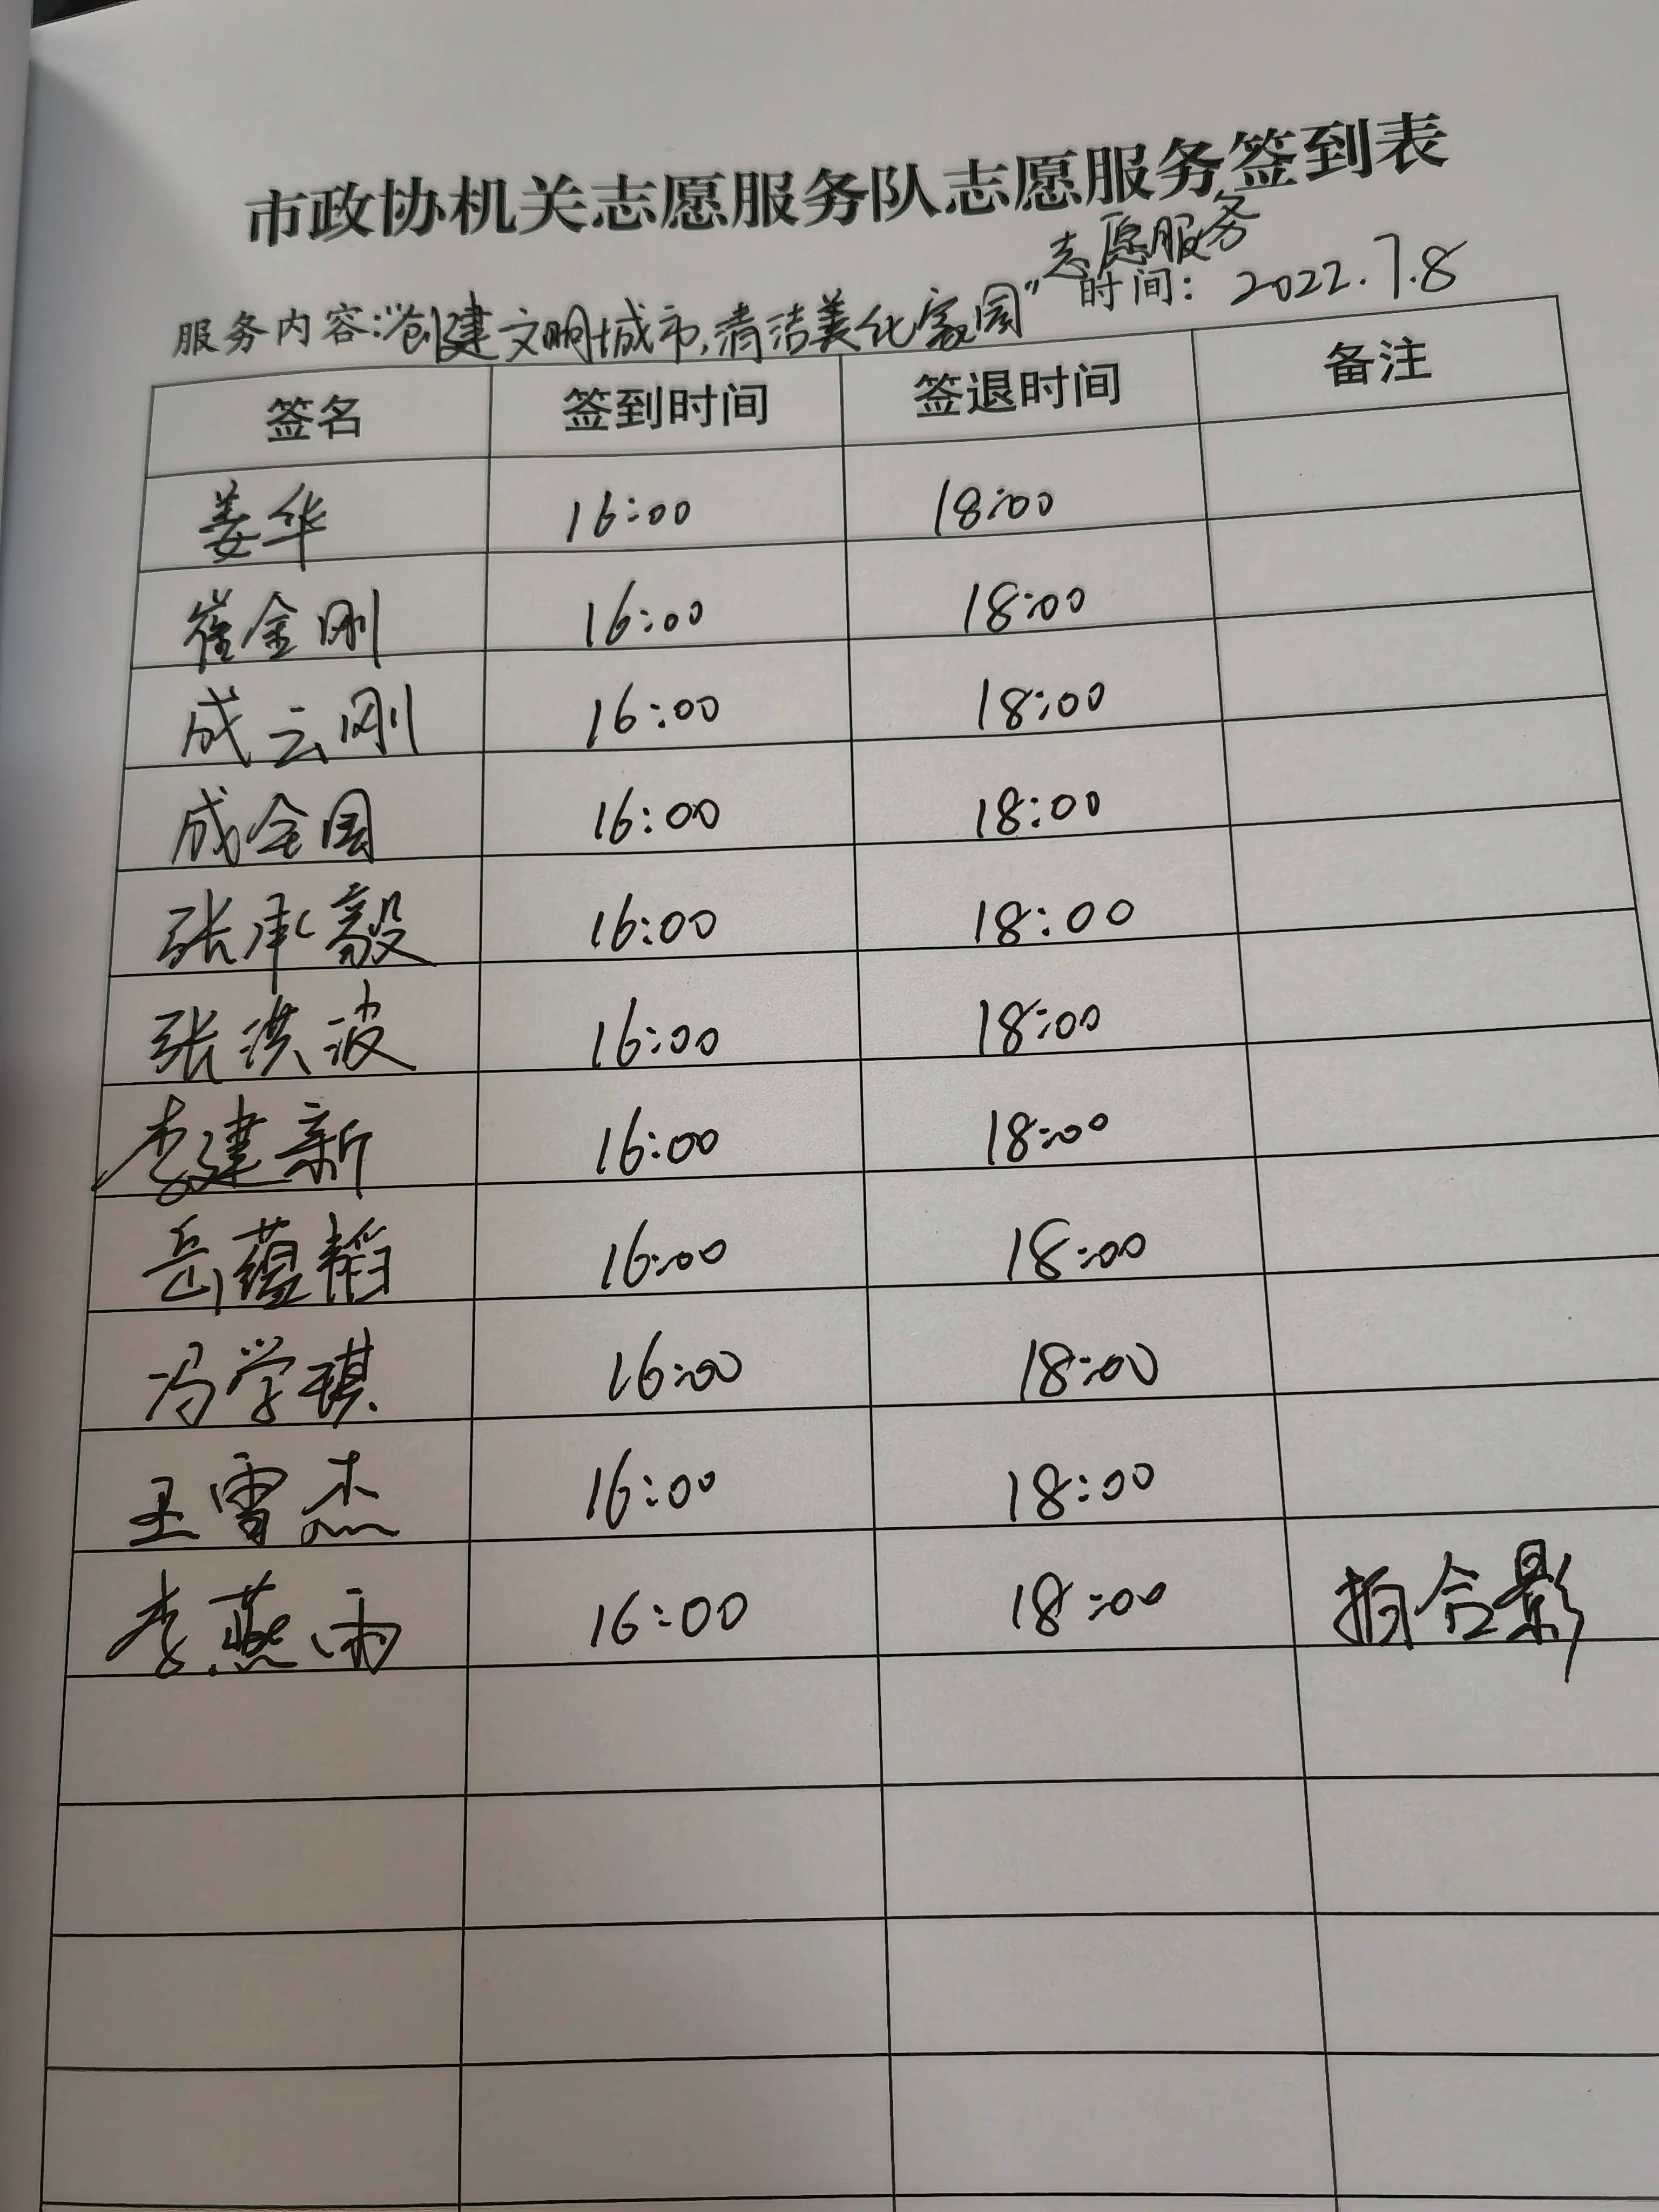 市政协机关志愿服务队志愿服务签到表
志愿服务
服务内容:"创建文明城市,清洁美化家园" 时间: 2022.7.8
签名 签到时间 签退时间 备注
姜华 16:00 18:00
崔金刚 16:00 18:00
成云刚 16:00 18:00
成金国 16:00 18:00
张承毅 16:00 18:00
张洪波 16:00 18:00
李建新 16:00 18:00
岳蕴韬 16:00 18:00
冯学琪 16:00 18:00
王雪杰 16:00 18:00
李燕雨 16:00 18:00 拍合影